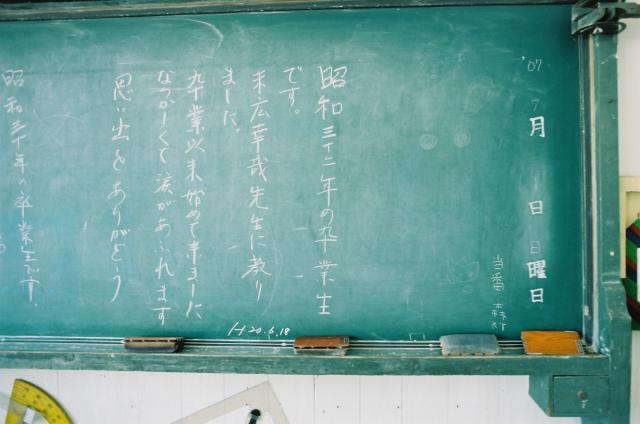 '07
7月 1日 日曜日
当番 森
昭和三十二年の卒業生
です。
末広幸哉先生に教り
ました。
卒業以来始めて来ました
なつかしくて涙があふれます
思い出をありがとう
H20.6.18
昭和三十年の卒業生です。